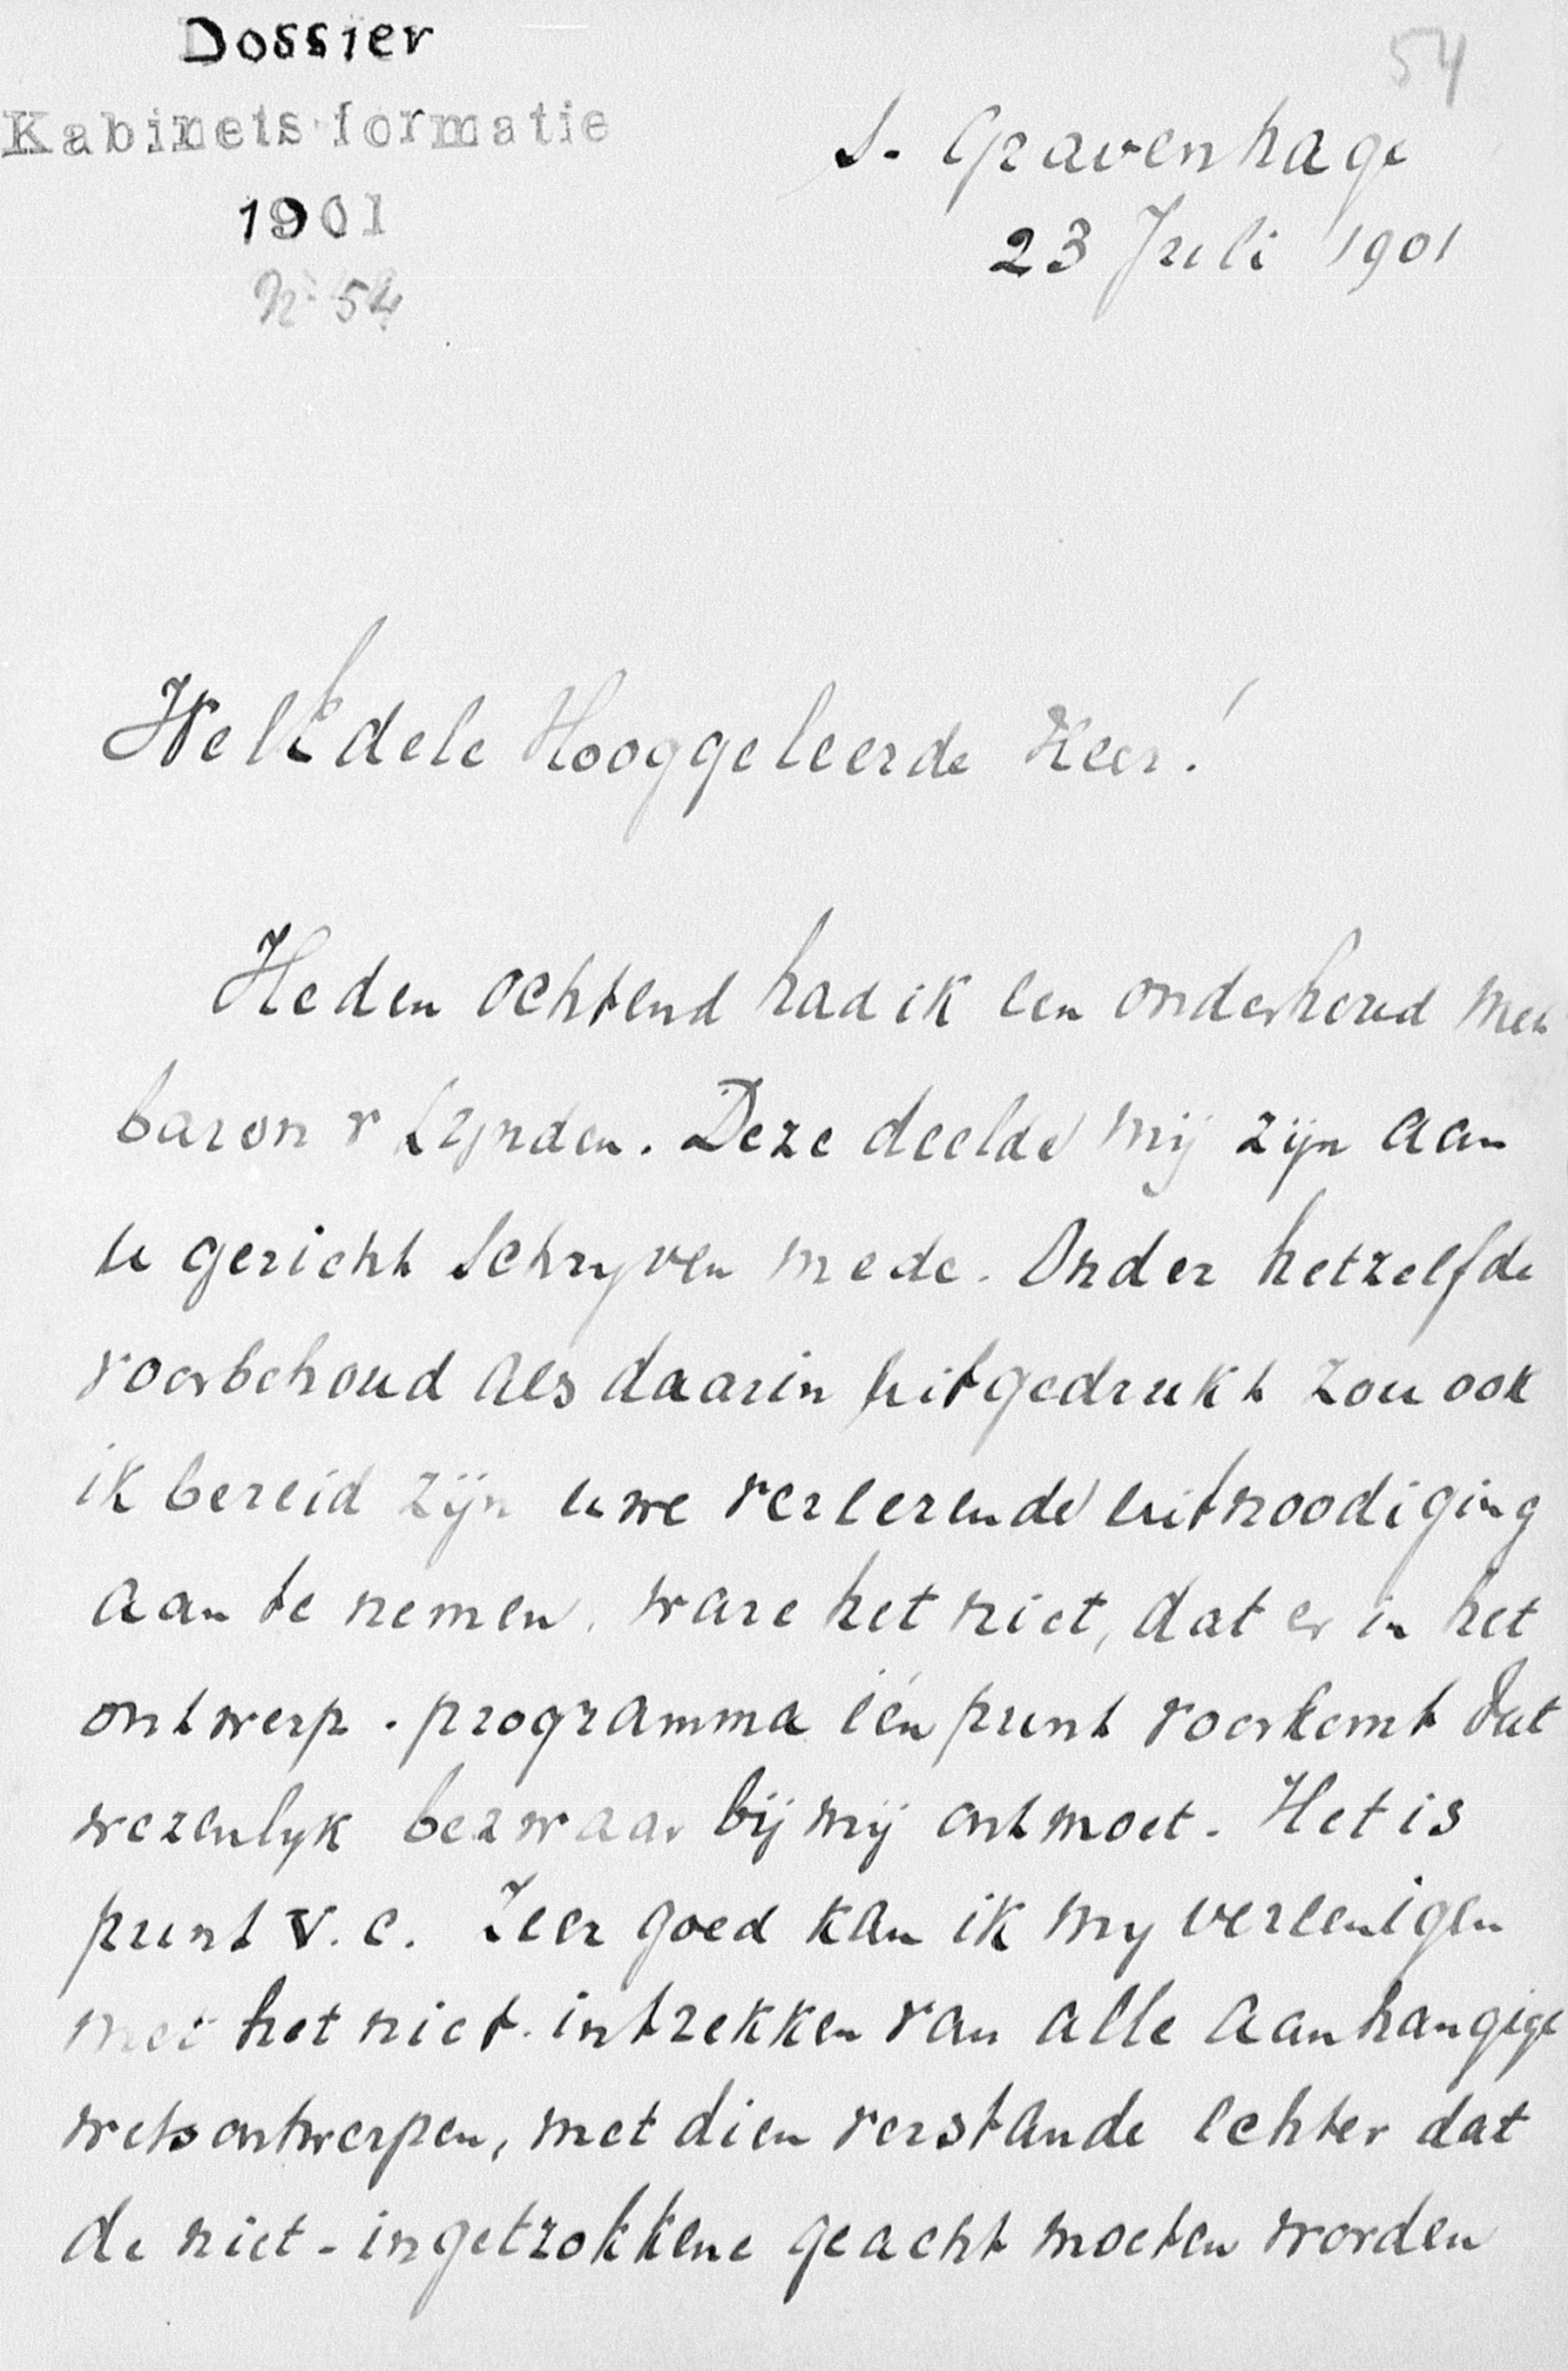 Dossier
Kabinetsformatie
1901
N° 54
54
s-Gravenhage
23 Juli 1901
WelEdele Hooggeleerde Heer!
Heden ochtend had ik een onderhoud met
baron v Lynden. Deze deelde mij zijn aan
u gericht schryven mede. Onder hetzelfde
voorbehoud als daarin uitgedrukt zou ook
ik bereid zijn uwe vereerende uitnoodiging
aan te nemen, ware het niet, dat er in het
ontwerp-programma één punt voorkomt dat
wezenlyk bezwaar bij mij ontmoet. Het is
punt V. c. Zeer goed kan ik my vereenigen
met het niet-intrekken van alle aanhangige
wetsontwerpen, met dien verstande echter dat
de niet-ingetrokkene geacht moeten worden